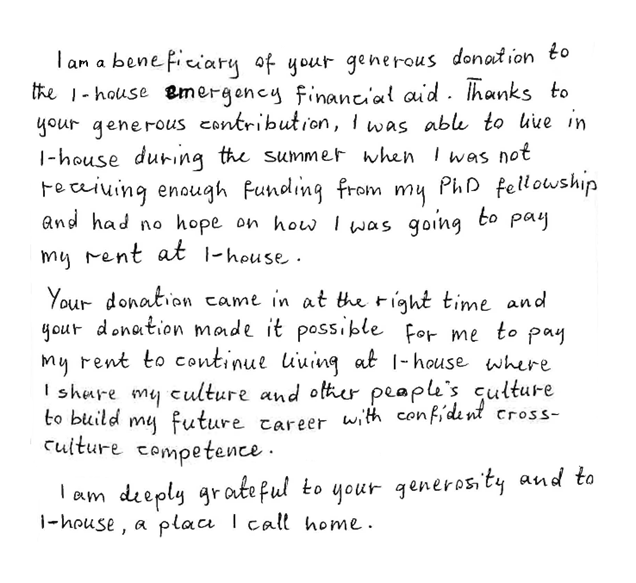 I am a beneficiary of your generous donation to
the I-house emergency financial aid. Thanks to
your generous contribution, I was able to live in
I-house during the summer when I was not
receiving enough funding from my PhD fellowship
and had no hope on how I was going to pay
my rent at I-house.
Your donation came in at the right time and
your donation made it possible for me to pay
my rent to continue living at I-house where
I share my culture and other people's culture
to build my future career with confident cross-
culture competence.
I am deeply grateful to your generosity and to
I-house, a place I call home.